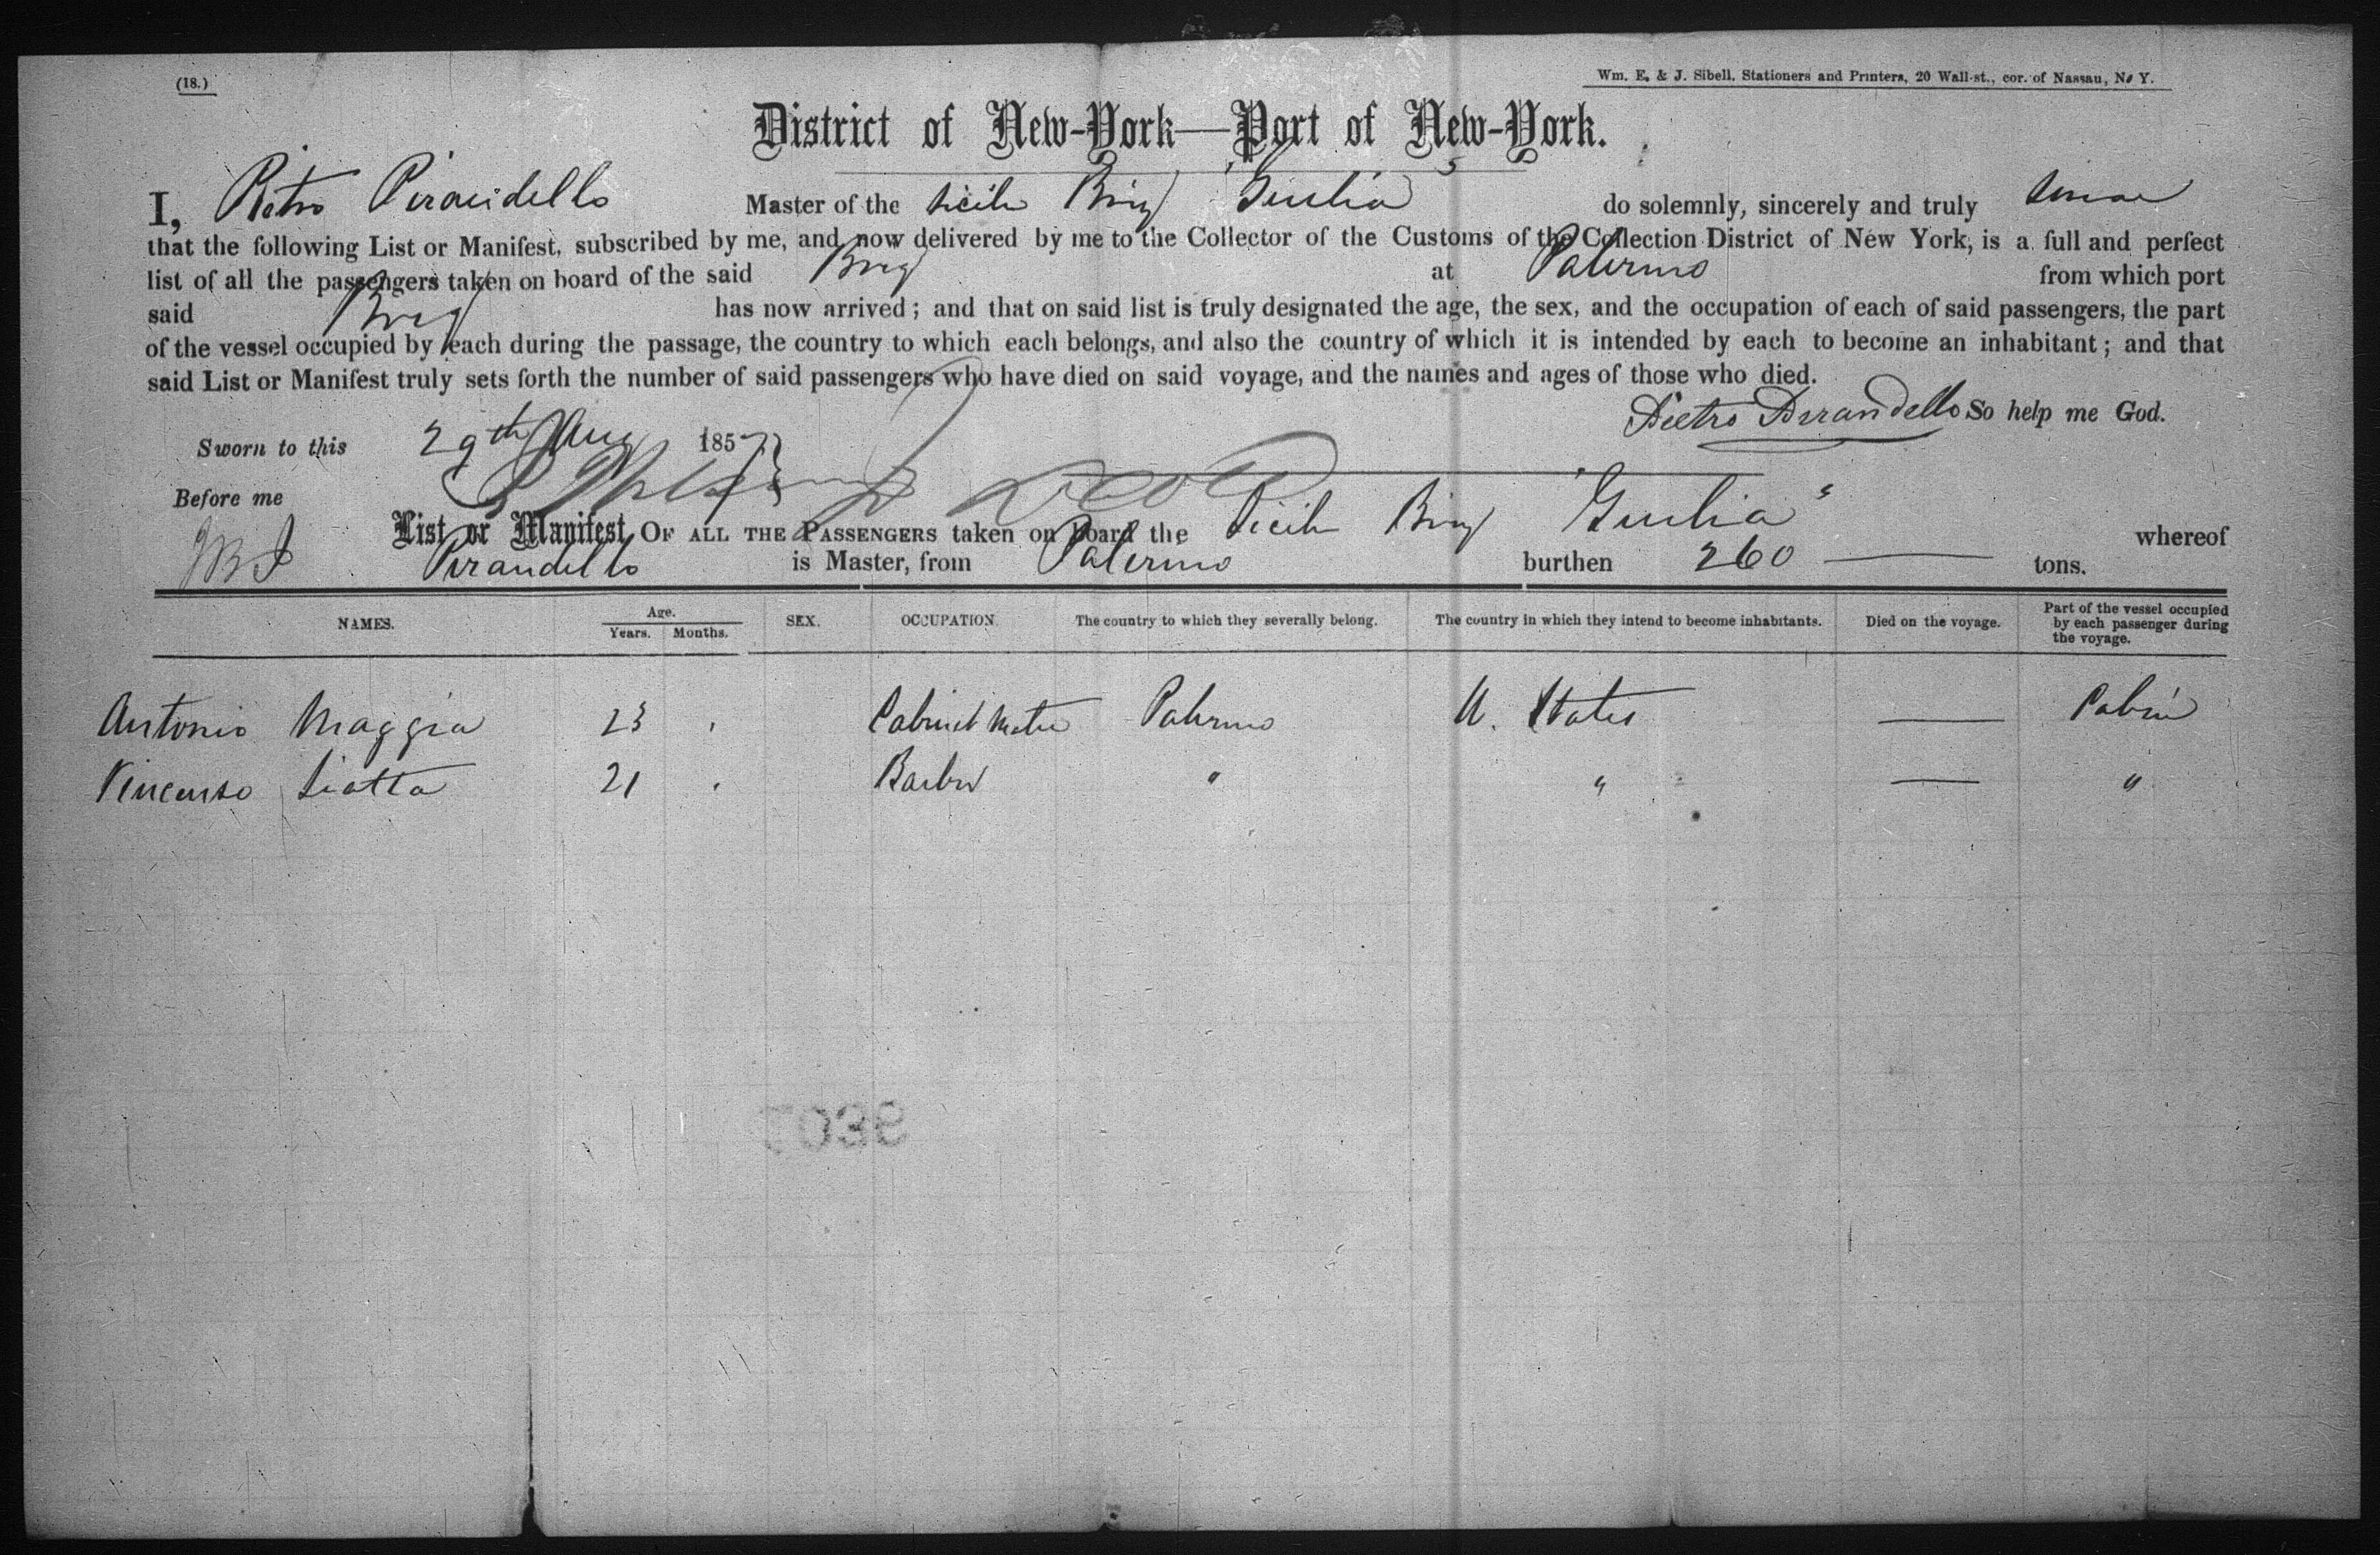 (18.)
Wm. E. & J. Sibell, Stationers and Printers, 20 Wall-st., cor. of Nassau, N. Y.
District of New-York—Port of New-York.
I, Pietro Pirandello Master of the Siciln Brig "Giulia" do solemnly, sincerely and truly swear
that the following List or Manifest, subscribed by me, and now delivered by me to the Collector of the Customs of the Collection District of New York, is a full and perfect
list of all the passengers taken on board of the said Brig at Palermo from which port
said Brig has now arrived; and that on said list is truly designated the age, the sex, and the occupation of each of said passengers, the part
of the vessel occupied by each during the passage, the country to which each belongs, and also the country of which it is intended by each to become an inhabitant; and that
said List or Manifest truly sets forth the number of said passengers who have died on said voyage, and the names and ages of those who died.
Pietro Pirandello So help me God.
Sworn to this 29th Aug 1857
Before me
List or Manifest OF ALL THE PASSENGERS taken on board the Siciln Brig "Giulia" whereof
Pirandello is Master, from Palermo burthen 260 — tons.
NAMES. Age. Years. Months. SEX. OCCUPATION. The country to which they severally belong. The country in which they intend to become inhabitants. Died on the voyage. Part of the vessel occupied by each passenger during the voyage.
Antonio Maggia 23 Cabinet Palermo U. States — Cabin
Vincenso 21 Barber " " — "